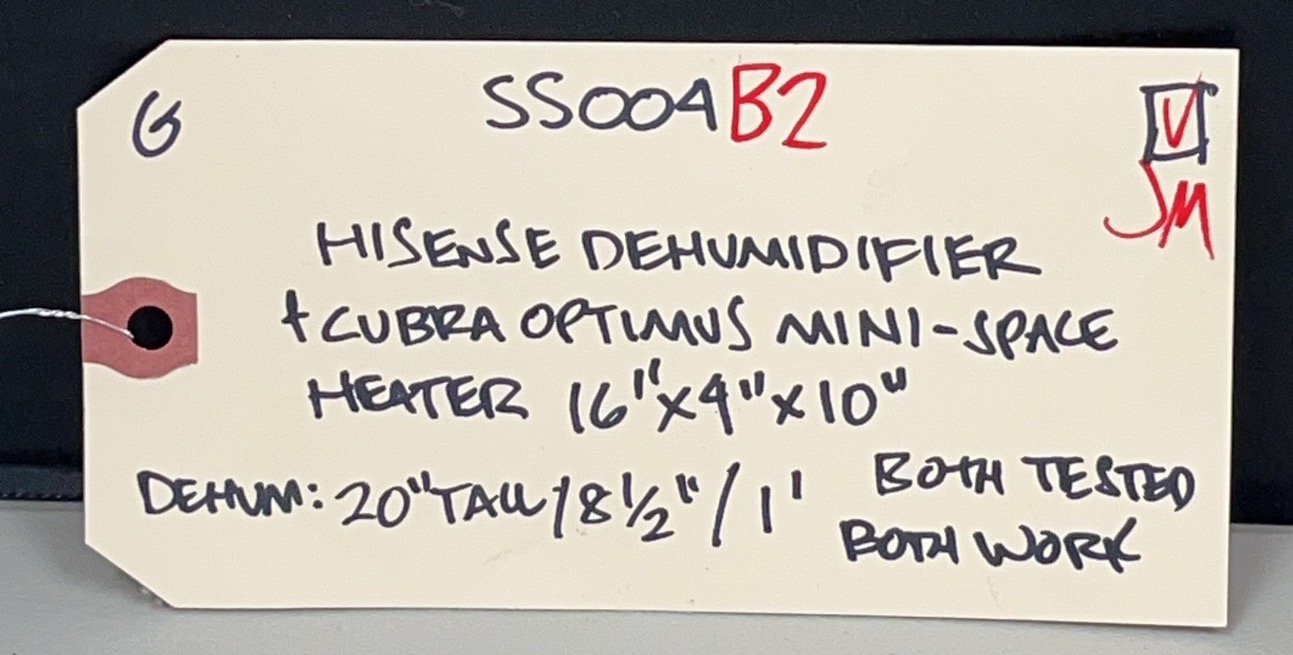 G
SS004B2
V
SM
HISENSE DEHUMIDIFIER
+ CUBRA OPTIMUS MINI-SPACE
HEATER 16"x4"x10"
DEHUM: 20" TALL/8 1/2"/1'
BOTH TESTED
BOTH WORK